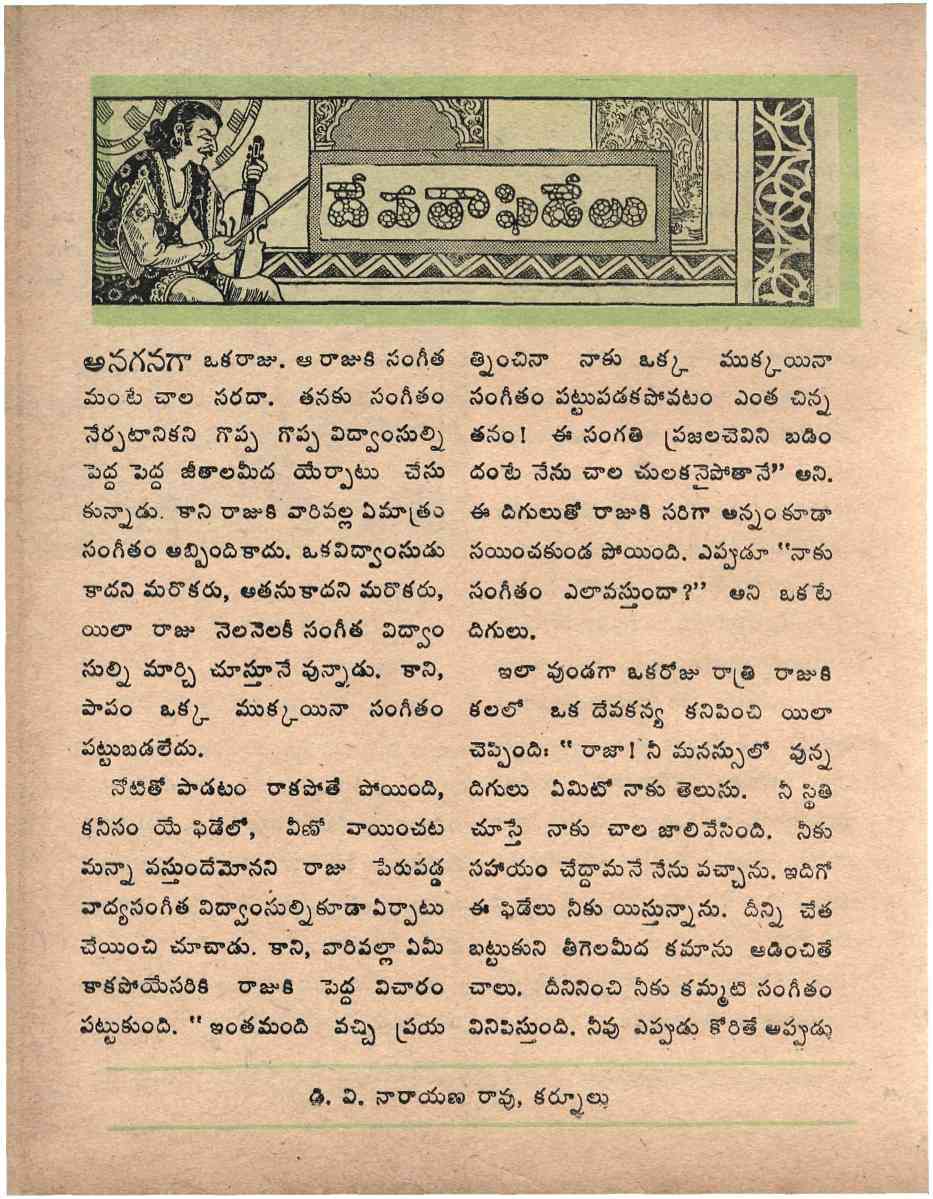 దేవతాఫిడేలు
అనగనగా ఒకరాజు. ఆ రాజుకి సంగీత
మంటే చాల సరదా. తనకు సంగీతం
నేర్పటానికని గొప్ప గొప్ప విద్వాంసుల్ని
పెద్ద పెద్ద జీతాలమీద యేర్పాటు చేసు
కున్నాడు. కాని రాజుకి వారివల్ల ఏమాత్రం
సంగీతం అబ్బిందికాదు. ఒకవిద్వాంసుడు
కాదని మరొకరు, అతనుకాదని మరొకరు,
యిలా రాజు నెలనెలకీ సంగీత విద్వాం
సుల్ని మార్చి చూస్తూనే వున్నాడు. కాని,
పాపం ఒక్క ముక్కయినా సంగీతం
పట్టుబడలేదు.
నోటితో పాడటం రాకపోతే పోయింది,
కనీసం యే ఫిడేలో, వీణో వాయించట
మన్నా వస్తుందేమోనని రాజు పేరుపడ్డ
వాద్యసంగీత విద్వాంసుల్నికూడా ఏర్పాటు
చేయించి చూచాడు. కాని, వారివల్లా ఏమీ
కాకపోయేసరికి రాజుకి పెద్ద విచారం
పట్టుకుంది. "ఇంతమంది వచ్చి ప్రయ
త్నించినా నాకు ఒక్క ముక్కయినా
సంగీతం పట్టుపడకపోవటం ఎంత చిన్న
తనం! ఈ సంగతి ప్రజలచెవిని బడిం
దంటే నేను చాల చులకనైపోతానే" అని.
ఈ దిగులుతో రాజుకి సరిగా అన్నంకూడా
సయించకుండ పోయింది. ఎప్పుడూ "నాకు
సంగీతం ఎలావస్తుందా?" అని ఒకటే
దిగులు.
ఇలా వుండగా ఒకరోజు రాత్రి రాజుకి
కలలో ఒక దేవకన్య కనిపించి యిలా
చెప్పింది: "రాజా! నీ మనస్సులో వున్న
దిగులు ఏమిటో నాకు తెలుసు. నీ స్థితి
చూస్తే నాకు చాల జాలివేసింది. నీకు
సహాయం చేద్దామనే నేను వచ్చాను. ఇదిగో
ఈ ఫిడేలు నీకు యిస్తున్నాను. దీన్ని చేత
బట్టుకుని తీగెలమీద కమాను ఆడించితే
చాలు. దీనినించి నీకు కమ్మటి సంగీతం
వినిపిస్తుంది. నీవు ఎప్పుడు కోరితే అప్పుడు
డి. వి. నారాయణ రావు, కర్నూలు